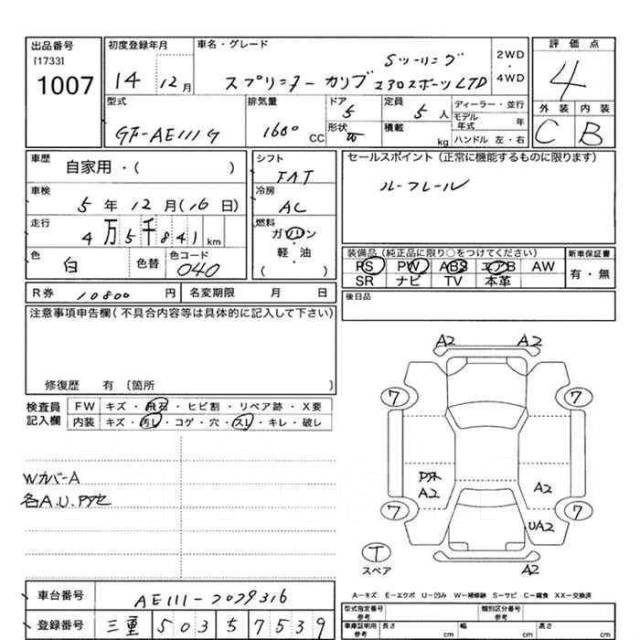 出品番号
[1733]
1007
初度登録年月
14 12 月
車名・グレード
Sツーリング
スプリンター カリブ 230スポーツLTD
2WD
・
4WD
評 価 点
4
外装 内装
C B
型式
GF-AE111G
排気量
1600 CC
ドア
5
形状
定員
5 人
積載
kg
ディーラー・並行
モデル年式 年
ハンドル 左・右
車歴
自家用・( )
車検
5 年 12 月 (16 日)
走行
4 万 5 千 8 4 1 km
色
白
色替
色コード
040
シフト
FAT
冷房
AC
燃料
ガソリン
・
軽・油
( )
セールスポイント (正常に機能するものに限ります)
ルーフレール
装備品 (純正品に限り○をつけてください)
PS PW ABS エアB AW
SR ナビ TV 本革
新車保証書
有・無
後日品
R券 10800 円
名変期限 月 日
注意事項申告欄(不具合内容等は具体的に記入して下さい)
修復歴 有 (箇所 )
検査員
記入欄
FW キズ・飛石・ヒビ割・リペア跡・X要
内装 キズ・汚レ・コゲ・穴・スレ・キレ・破レ
Wカバー A
各A.U.アヤセ
A2 A2
7 7
A2
A2
7 7
UA2
A2
T
スペア
A－キズ E－エクボ U－凹み W－補修跡 S－サビ C－腐食 XX－交換済
車台番号 AE111-2039316
登録番号 三重 503 5 7539
型式指定番号
参考
類別区分番号
参考
車庫証明用
参考
長さ cm
幅 cm
高さ cm